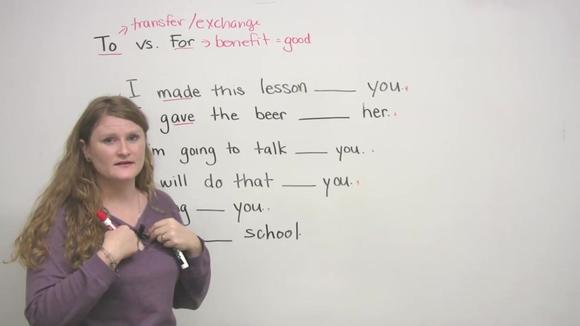 transfer/exchange
To vs. For → benefit = good
I made this lesson ____ you.
gave the beer ____ her.
m going to talk ___ you.
will do that ___ you.
g ___ you.
___ school.